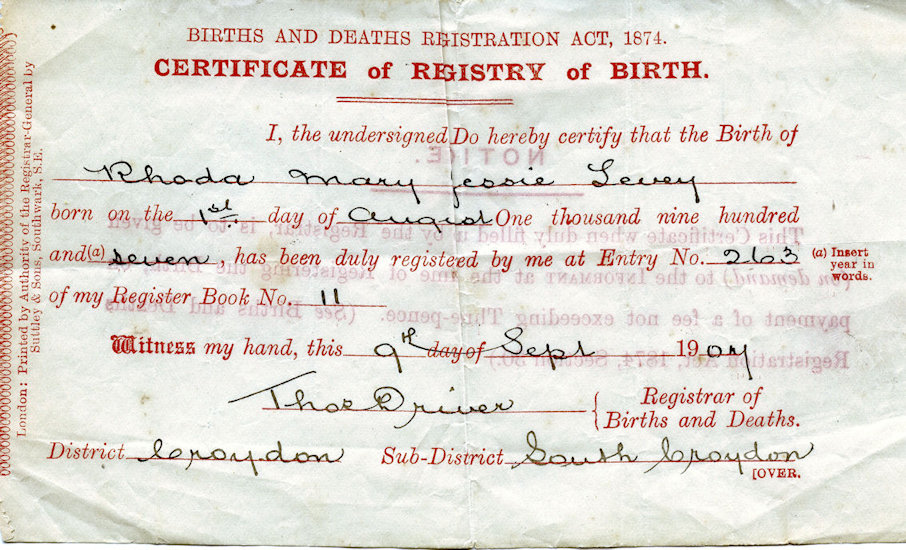 BIRTHS AND DEATHS REGISTRATION ACT, 1874.
CERTIFICATE of REGISTRY of BIRTH.
I, the undersigned Do hereby certify that the Birth of
Rhoda Mary Jessie Levey
born on the 1st day of August One thousand nine hundred
and (a) seven, has been duly registered by me at Entry No. 263
(a) Insert
year in
words.
of my Register Book No. 11
Witness my hand, this 9th day of Sept 1907
Thos Driver
Registrar of
Births and Deaths.
District Croydon Sub-District South Croydon
[OVER.
London: Printed by Authority of the Registrar-General by
Suttley & Sons, Southwark, S.E.
NOTICE.
This Certificate when duly filled in by the Registrar, is to be given
(on demand) to the INFORMANT at the time of Registering the Birth, on
payment of a fee not exceeding Three-pence. (See Births and Deaths
Registration Act, 1874, Section 30.)